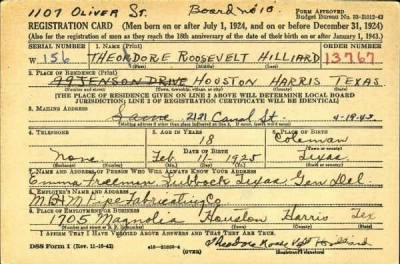 1107 Oliver St. Board no 10.
FORM APPROVED
Budget Bureau No. 33-R012-43
REGISTRATION CARD (Men born on or after July 1, 1924, and on or before December 31, 1924)
(Also for the registration of men as they reach the 18th anniversary of the date of their birth on or after January 1, 1943.)
SERIAL NUMBER 1. NAME (Print) ORDER NUMBER
W 156 THEORDORE ROOSEVELT HILLIARD 13767
2. PLACE OF RESIDENCE (Print)
JENSON DRIVE HOUSTON HARRIS TEXAS
(Number and street) (Town, township, village or city) (County) (State)
[THE PLACE OF RESIDENCE GIVEN ON LINE 2 ABOVE WILL DETERMINE LOCAL BOARD
JURISDICTION; LINE 2 OF REGISTRATION CERTIFICATE WILL BE IDENTICAL]
3. MAILING ADDRESS
Same 2121 Canal St. 4-19-43
[Mailing address if other than place indicated on line 2. If same, insert word same]
4. TELEPHONE 5. AGE IN YEARS 6. PLACE OF BIRTH
18 Coleman
DATE OF BIRTH
None Feb 11 1925 Texas
(Exchange) (Number) (Mo.) (Day) (Yr.) (State or country)
7. NAME AND ADDRESS OF PERSON WHO WILL ALWAYS KNOW YOUR ADDRESS
Emma Freeman Lubbock Texas Gen Del
8. EMPLOYER'S NAME AND ADDRESS
Pipe Fabricating Co
9. PLACE OF EMPLOYMENT OR BUSINESS
1705 Magnolia Houston Harris Tex
(Number and street or R. F. D. number) (Town) (County) (State)
I AFFIRM THAT I HAVE VERIFIED ABOVE ANSWERS AND THAT THEY ARE TRUE.
DSS Form 1 (Rev. 11-16-42) (OVER)